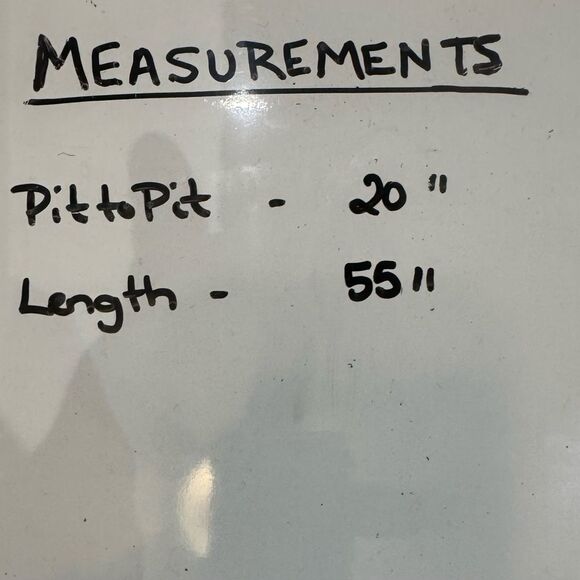 MEASUREMENTS
Pit to Pit - 20"
Length - 55"